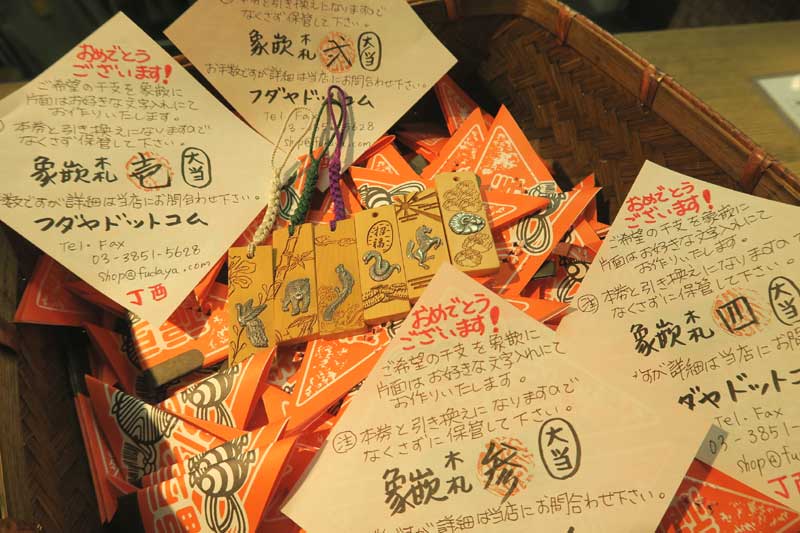 おめでとう
ございます!
ご希望の干支を象嵌に
片面はお好きな文字入れにて
お作りいたします。
本券と引き換えになりますので
なくさずに保管して下さい。
象嵌木札 壱 大当
数ですが詳細は当店にお問合わせ下さい。
フダヤドットコム
Tel・Fax
03-3851-5628
shop@fudaya.com
丁酉
と引き換えになりますので
なくさずに保管して下さい。
象嵌木札 弐 大当
お手数ですが詳細は当店にお問合わせ下さい。
フダヤドットコム
Tel
03-3
5628
shop@f
おめでとう
ございます!
ご希望の干支を象嵌に
片面はお好きな文字入れにて
お作りいたします。
注 本券と引き換えになりますので
なくさずに保管して下さい。
象嵌木札 参 大当
すが詳細は当店にお問合わせ下さい。
おめでとう
ございます!
ご希望の干支を象嵌に
片面はお好きな文字入にて
お作りいたします。
注 本券と引き換えになりますので
なくさずに保管して下さい。
象嵌木札 四 大当
すが詳細は当店にお問合
ダヤドットコム
Tel・Fax
03-3851-5
shop@fuda
丁酉